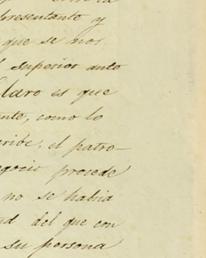 presentante y
que se nos
l superior auto
Claro es que
ento, como lo
cribe, el patro-
egocio procede
no se habia
ad del que con
su persona